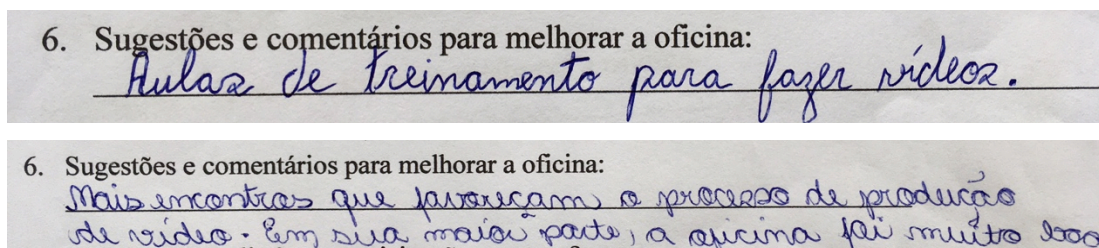 6. Sugestões e comentários para melhorar a oficina:
Aulas de treinamento para fazer vídeos.
6. Sugestões e comentários para melhorar a oficina:
Mais encontros que favoreçam o processo de produção
de vídeo. Em sua maior parte, a oficina foi muito boa